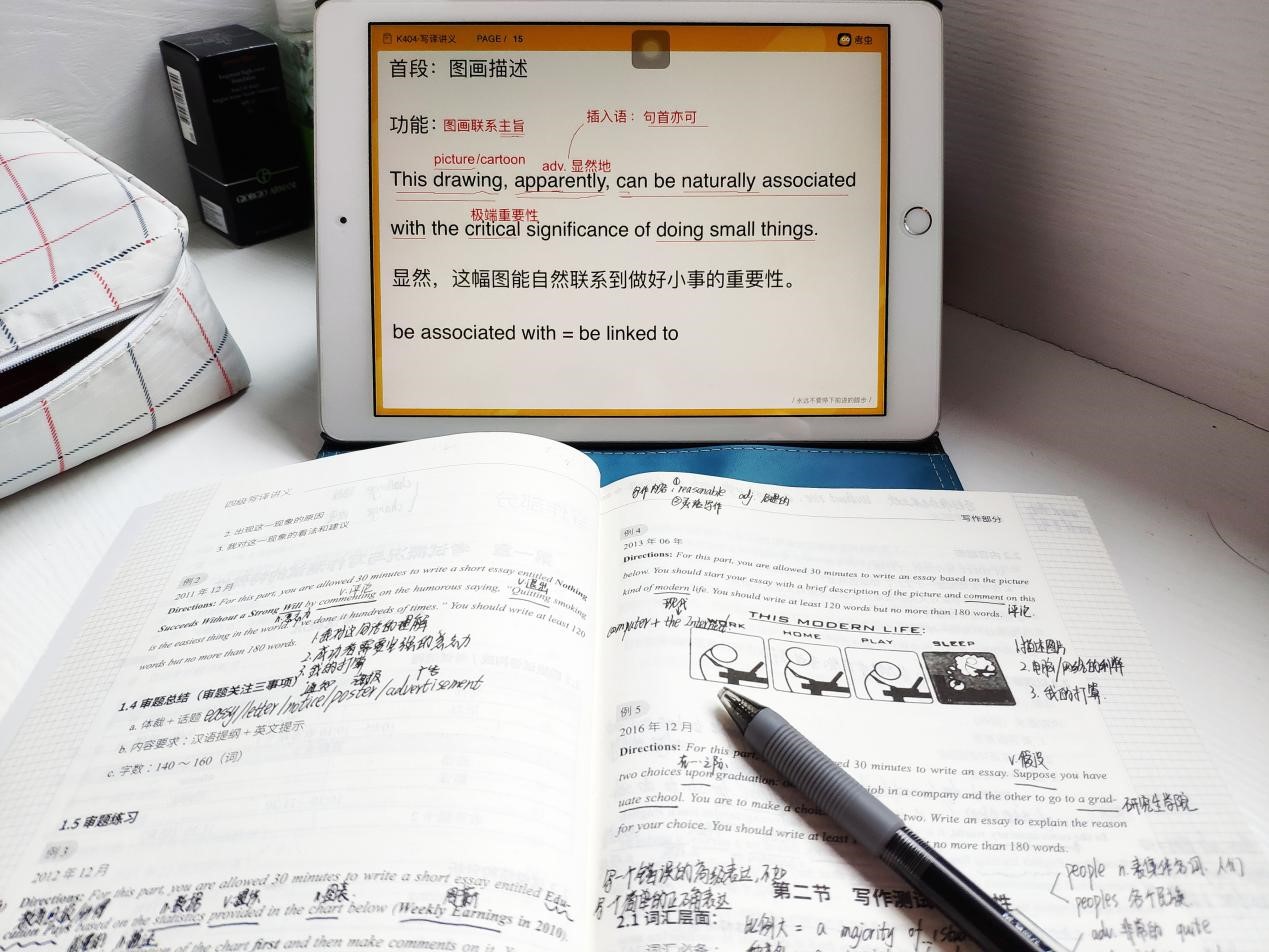 K404-写译讲义 PAGE / 15
考虫
首段：图画描述
功能：图画联系主旨
插入语：句首亦可
picture/cartoon
adv. 显然地
This drawing, apparently, can be naturally associated
极端重要性
with the critical significance of doing small things.
显然，这幅图能自然联系到做好小事的重要性。
be associated with = be linked to
/ 永远不要停下前进的脚步 /
GIORGIO ARMANI
四级写译讲义
2. 出现这一现象的原因
3. 我对这一现象的看法和建议
例 2
2011 年 12 月
Directions: For this part, you are allowed 30 minutes to write a short essay entitled Nothing
v.评论
v.退出
Succeeds Without a Strong Will by commenting on the humorous saying, "Quitting smoking
is the easiest thing in the world. I've done it hundreds of times." You should write at least 120
words but no more than 180 words.
1.我对这句话的理解
2.成功者需要坚强的意志力
3.我的打算
1.4 审题总结（审题关注三事项）
通知 海报 广告
a. 体裁 + 话题 essay/letter/notice/poster/advertisement
b. 内容要求：汉语提纲 + 英文提示
c. 字数：140 ～ 160（词）
1.5 审题练习
例 3
2012 年 12 月
Directions: For this part, you are allowed 30 minutes to write a short essay entitled Edu-
cation Pays based on the statistics provided in the chart below (Weekly Earnings in 2010).
of the chart first and then make comments on it. You
① reasonable adj. 合理的
写作部分
例 4
2013 年 06 年
Directions: For this part, you are allowed 30 minutes to write an essay based on the picture
below. You should start your essay with a brief description of the picture and comment on this
kind of modern life. You should write at least 120 words but no more than 180 words. 评论
现代
computer + the Internet
THIS MODERN LIFE:
WORK HOME PLAY SLEEP
1.描述图片
2.电脑/网络的利弊
3.我的打算
例 5
2016 年 12 月
Directions: For this part, 30 minutes to write an essay. Suppose you have
v.假设
two choices upon graduation: job in a company and the other to go to a grad-
uate school. You are to make a choice two. Write an essay to explain the reason
研究生学院
for your choice. You should write at least no more than 180 words.
写一个错误的高级表达，不如
写一个简单的正确表达
第二节 写作测试 性
2.1 词汇层面：
比例大 = a majority of
词汇必备：
people n. 人们
peoples 各个民族
adv. 非常的 quite